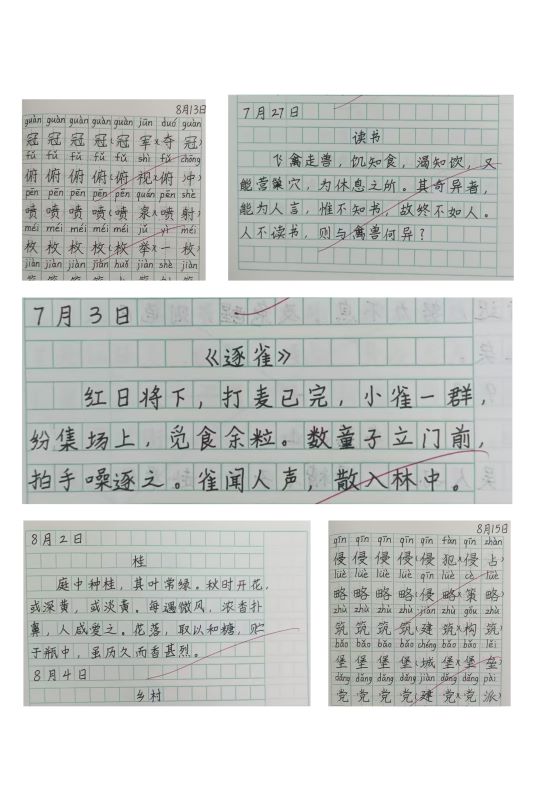 8月13日
guàn guàn guàn guàn guàn jūn duó guàn
冠 冠 冠 冠 冠 军 夺 冠
fǔ fǔ fǔ fǔ fǔ shì fǔ chōng
俯 俯 俯 俯 俯 视 俯 冲
pēn pēn pēn pēn pēn quán pēn shè
喷 喷 喷 喷 喷 泉 喷 射
méi méi méi méi méi jǔ yì méi
枚 枚 枚 枚 枚 举 一 枚
jiàn jiàn jiàn jiàn huǒ jiàn shè jiàn
7月27日
读书
飞禽走兽,饥知食,渴知饮,又
能营巢穴,为休息之所。其奇异者,
能为人言,惟不知书,故终不如人。
人不读书,则与禽兽何异?
7月3日
《逐雀》
红日将下,打麦已完,小雀一群,
纷集场上,觅食余粒。数童子立门前,
拍手噪逐之。雀闻人声,散入林中。
8月2日
桂
庭中种桂,其叶常绿。秋时开花,
或深黄,或淡黄。每遇微风,浓香扑
鼻,人咸爱之。花落,取以和糖,贮
于瓶中,虽历久而香甚烈。
8月4日
乡村
8月15日
qīn qīn qīn qīn qīn fàn qīn zhàn
侵 侵 侵 侵 侵 犯 侵 占
lüè lüè lüè qīn lüè cè lüè
略 略 略 略 侵 略 策 略
zhù zhù zhù zhù jiàn zhù gòu zhù
筑 筑 筑 筑 建 筑 构 筑
bǎo bǎo bǎo bǎo chéng bǎo bǎo lěi
堡 堡 堡 堡 城 堡 堡 垒
dǎng dǎng dǎng dǎng jiàn dǎng dǎng pài
党 党 党 党 建 党 党 派